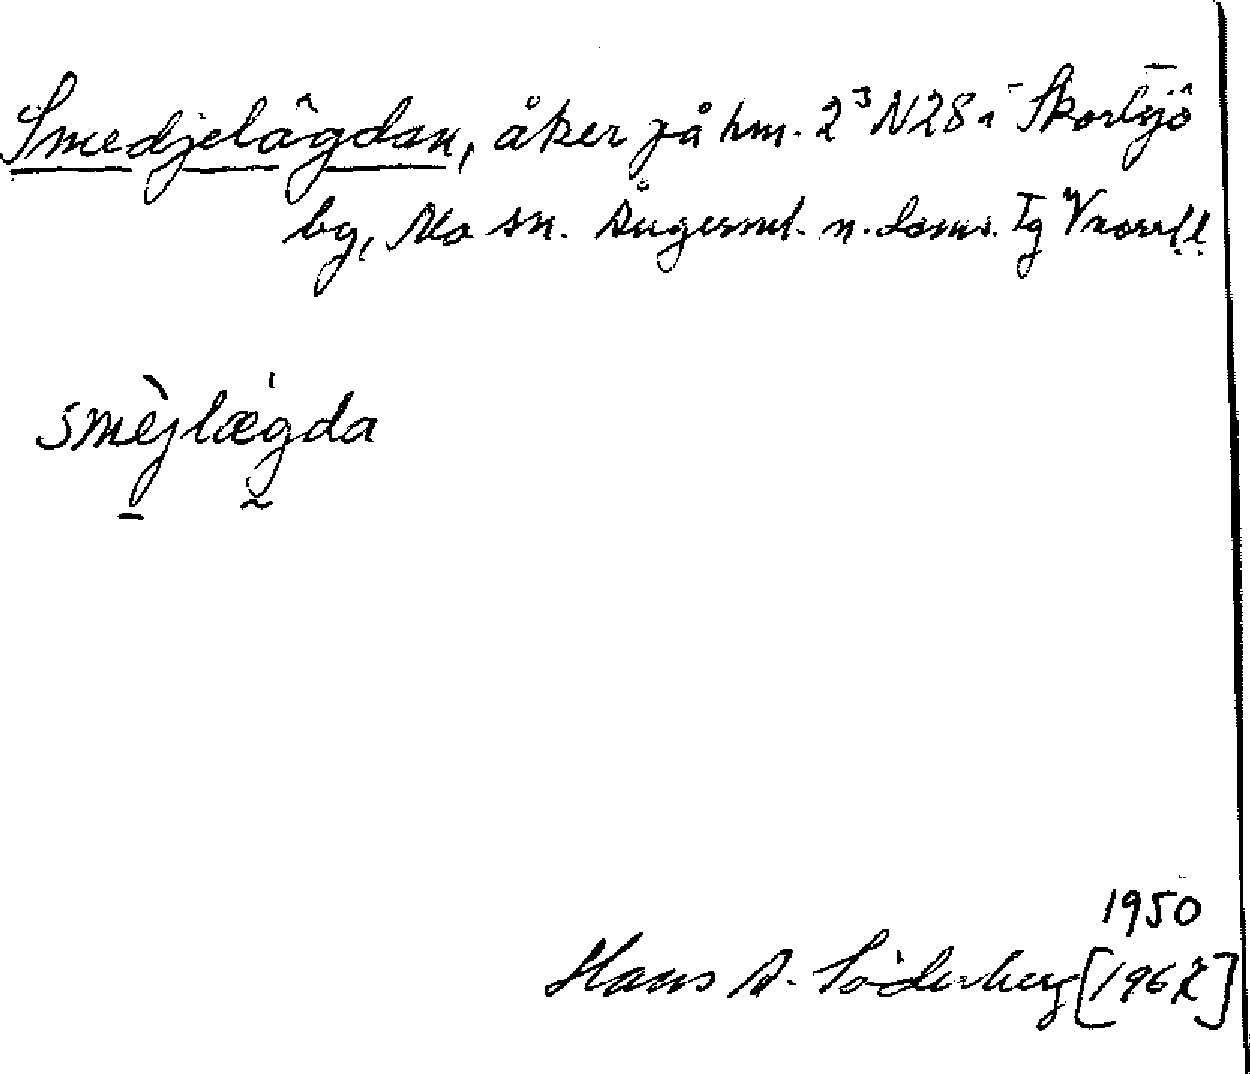 Smedjelägdan, åker på hm. 2³ N28 i Skortsjö
by, Mo sn. Ångerml. n. doms. Tg Vnorrl.
smèjlægda
1950
Hans A. Söderberg [1962]